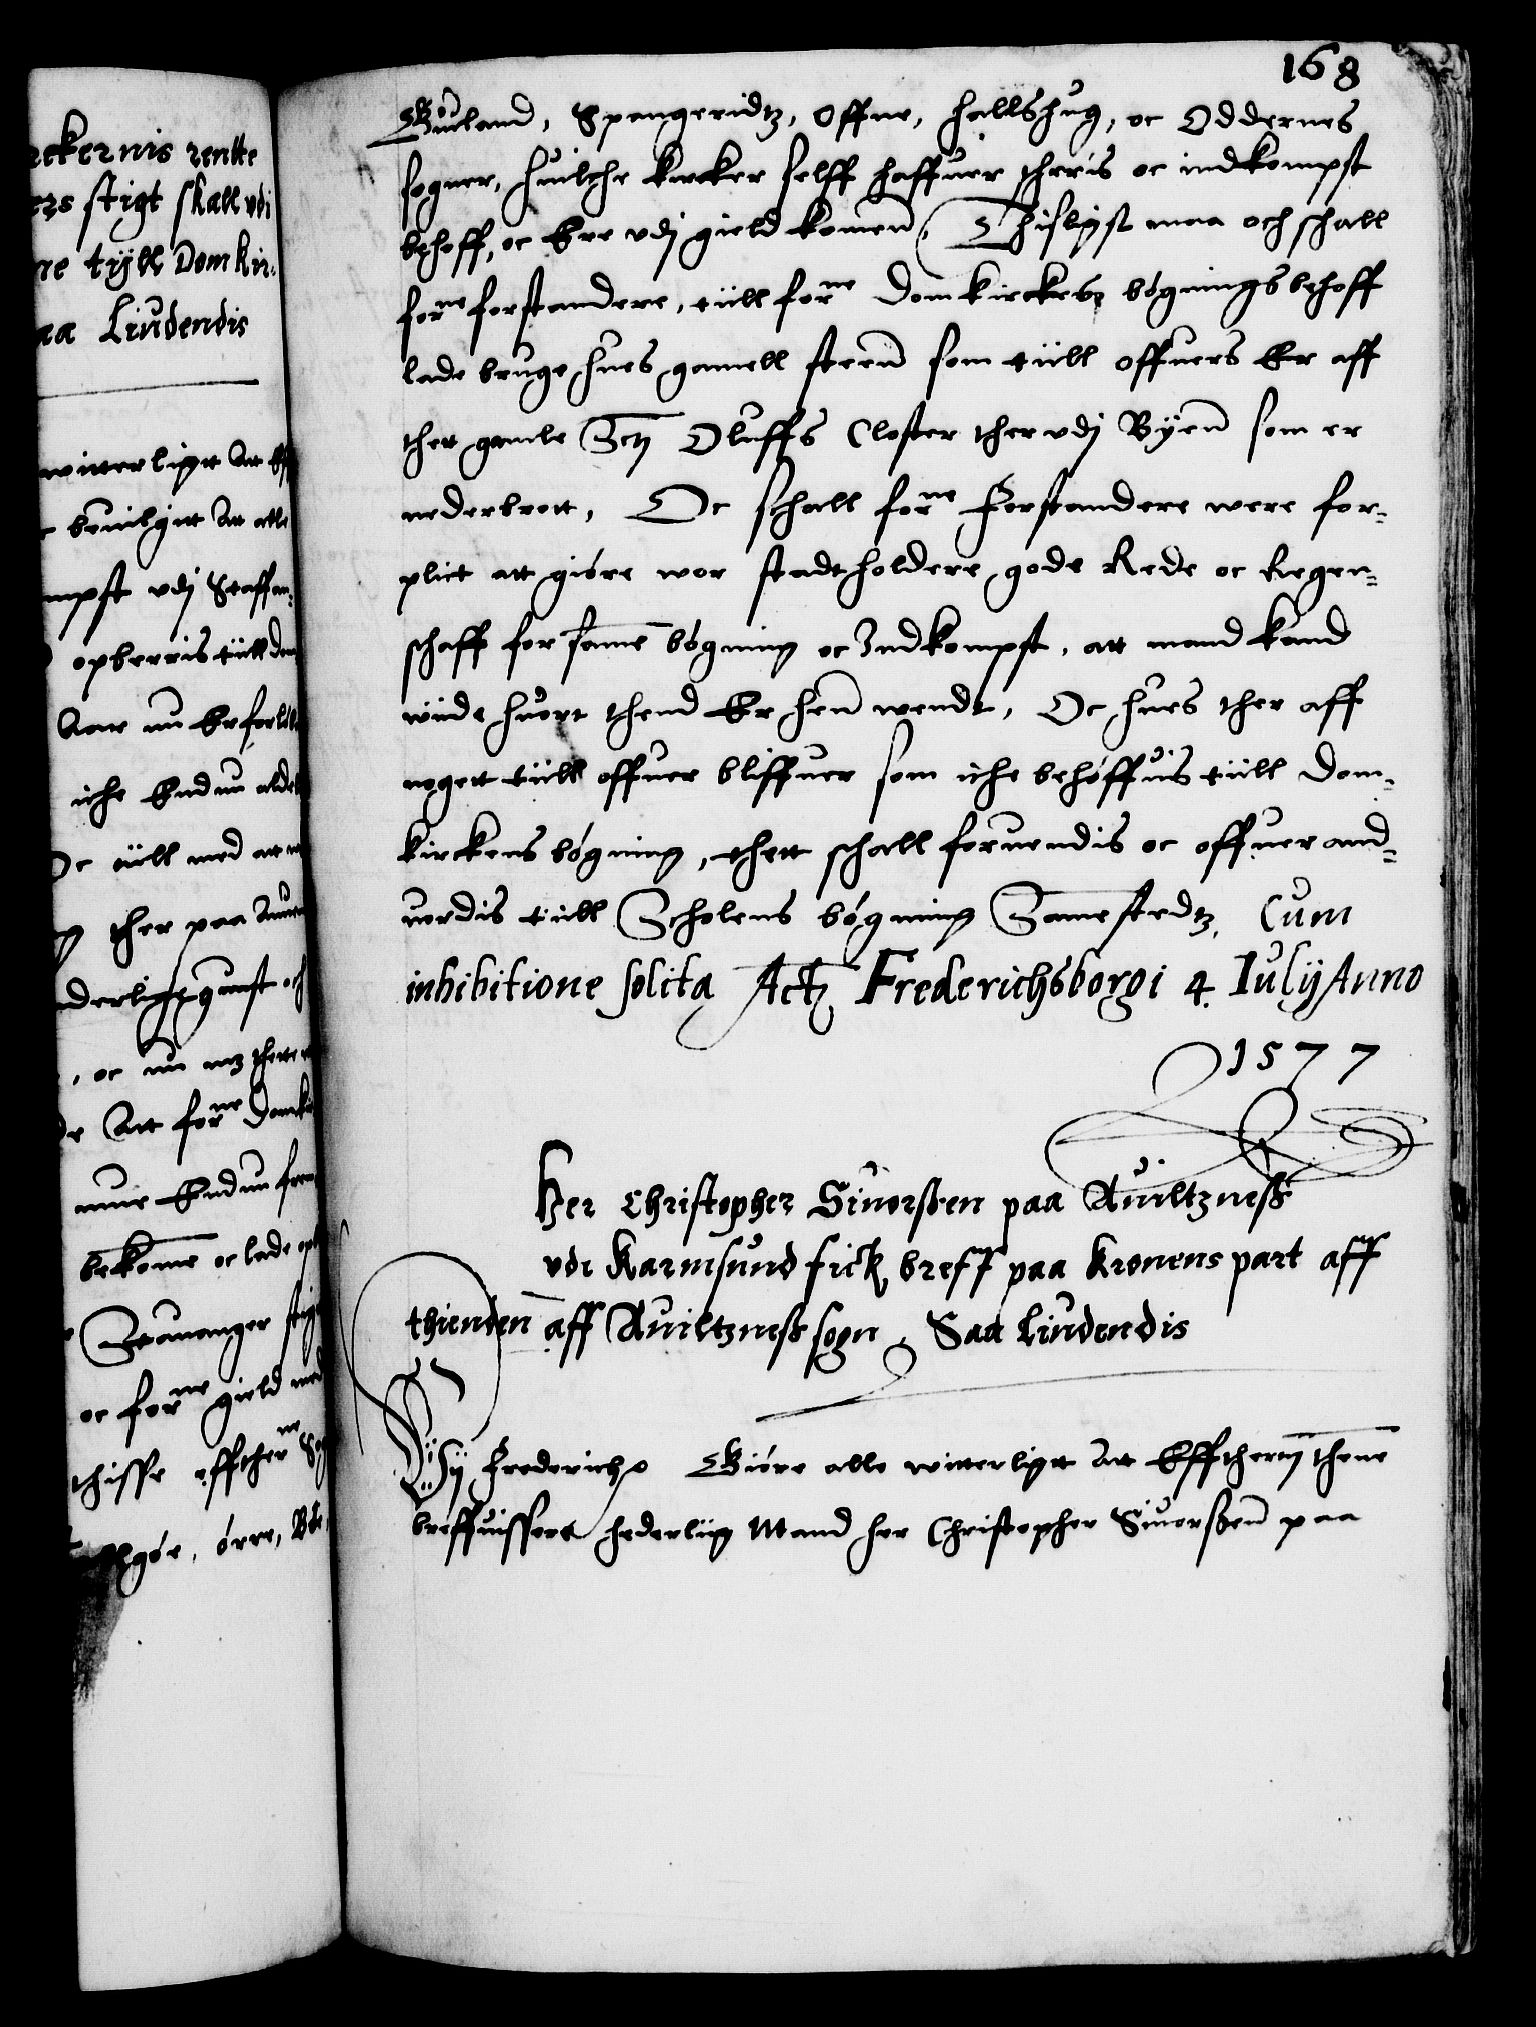 168
Guland, Spangeridtz, Offne, Hallshug, oc Oddernes
sogner, huilche kircker selff haffuer theris oc indkompst
behoff, oc Ere vdj gield komen, Thisligst maa och schall
forne forstandere, tiill forne Domkirckes bögnings behoff
lade bruge hues gamell steen som tiill offuers Er aff
thet gamle Sctj Oluffs Closter ther vdj Byen som er
nederbrott, Oc schall forne Forstandere were for=
plict att giöre wor stadtholdere gode Rede oc Regen=
schaff for same bögning oc Indkompst, att mand kand
wiide huort thend Er hen wendt, Oc hues ther aff
nogett tiill offuer bliffuer som iche behöffuis tiill Dom=
kirckens bögning, thett schall foruendis oc offuer and=
uordis tiill Scholens bögning Samestedtz, Cum
inhibitione solita Actz Frederichsborgi 4. Iulij Anno
1577
Her Christopher Siuerssen paa Auiltzness
vdi Karmsund fick breff paa Kronens part aff
thienden aff Auiltzness sogn, Saa Liudendis
Wij Frederich Giöre alle witterligt Att Effthertj thene
breffuissere hederliig Mand her Christopher Siuerssen paa
rckernis rentte
ers stigt skall vdi
ne tyll Dom kir=
aa Liudendis
witterligtt Att Eff
beuilgitt Att alle
mpst vdj Staffan=
opberris tiill den
Aar nu Er forlö
iche End nu alde
Oc tiill med att
ther paa Anuen
nderligst gunst och
, oc nu mz thette
Att forne Domki
nuie End nu frem
bekome oc lade op
Stauanger stig
oc forne gield med
thisse effther ne Sog
lgöe, örre, Bö